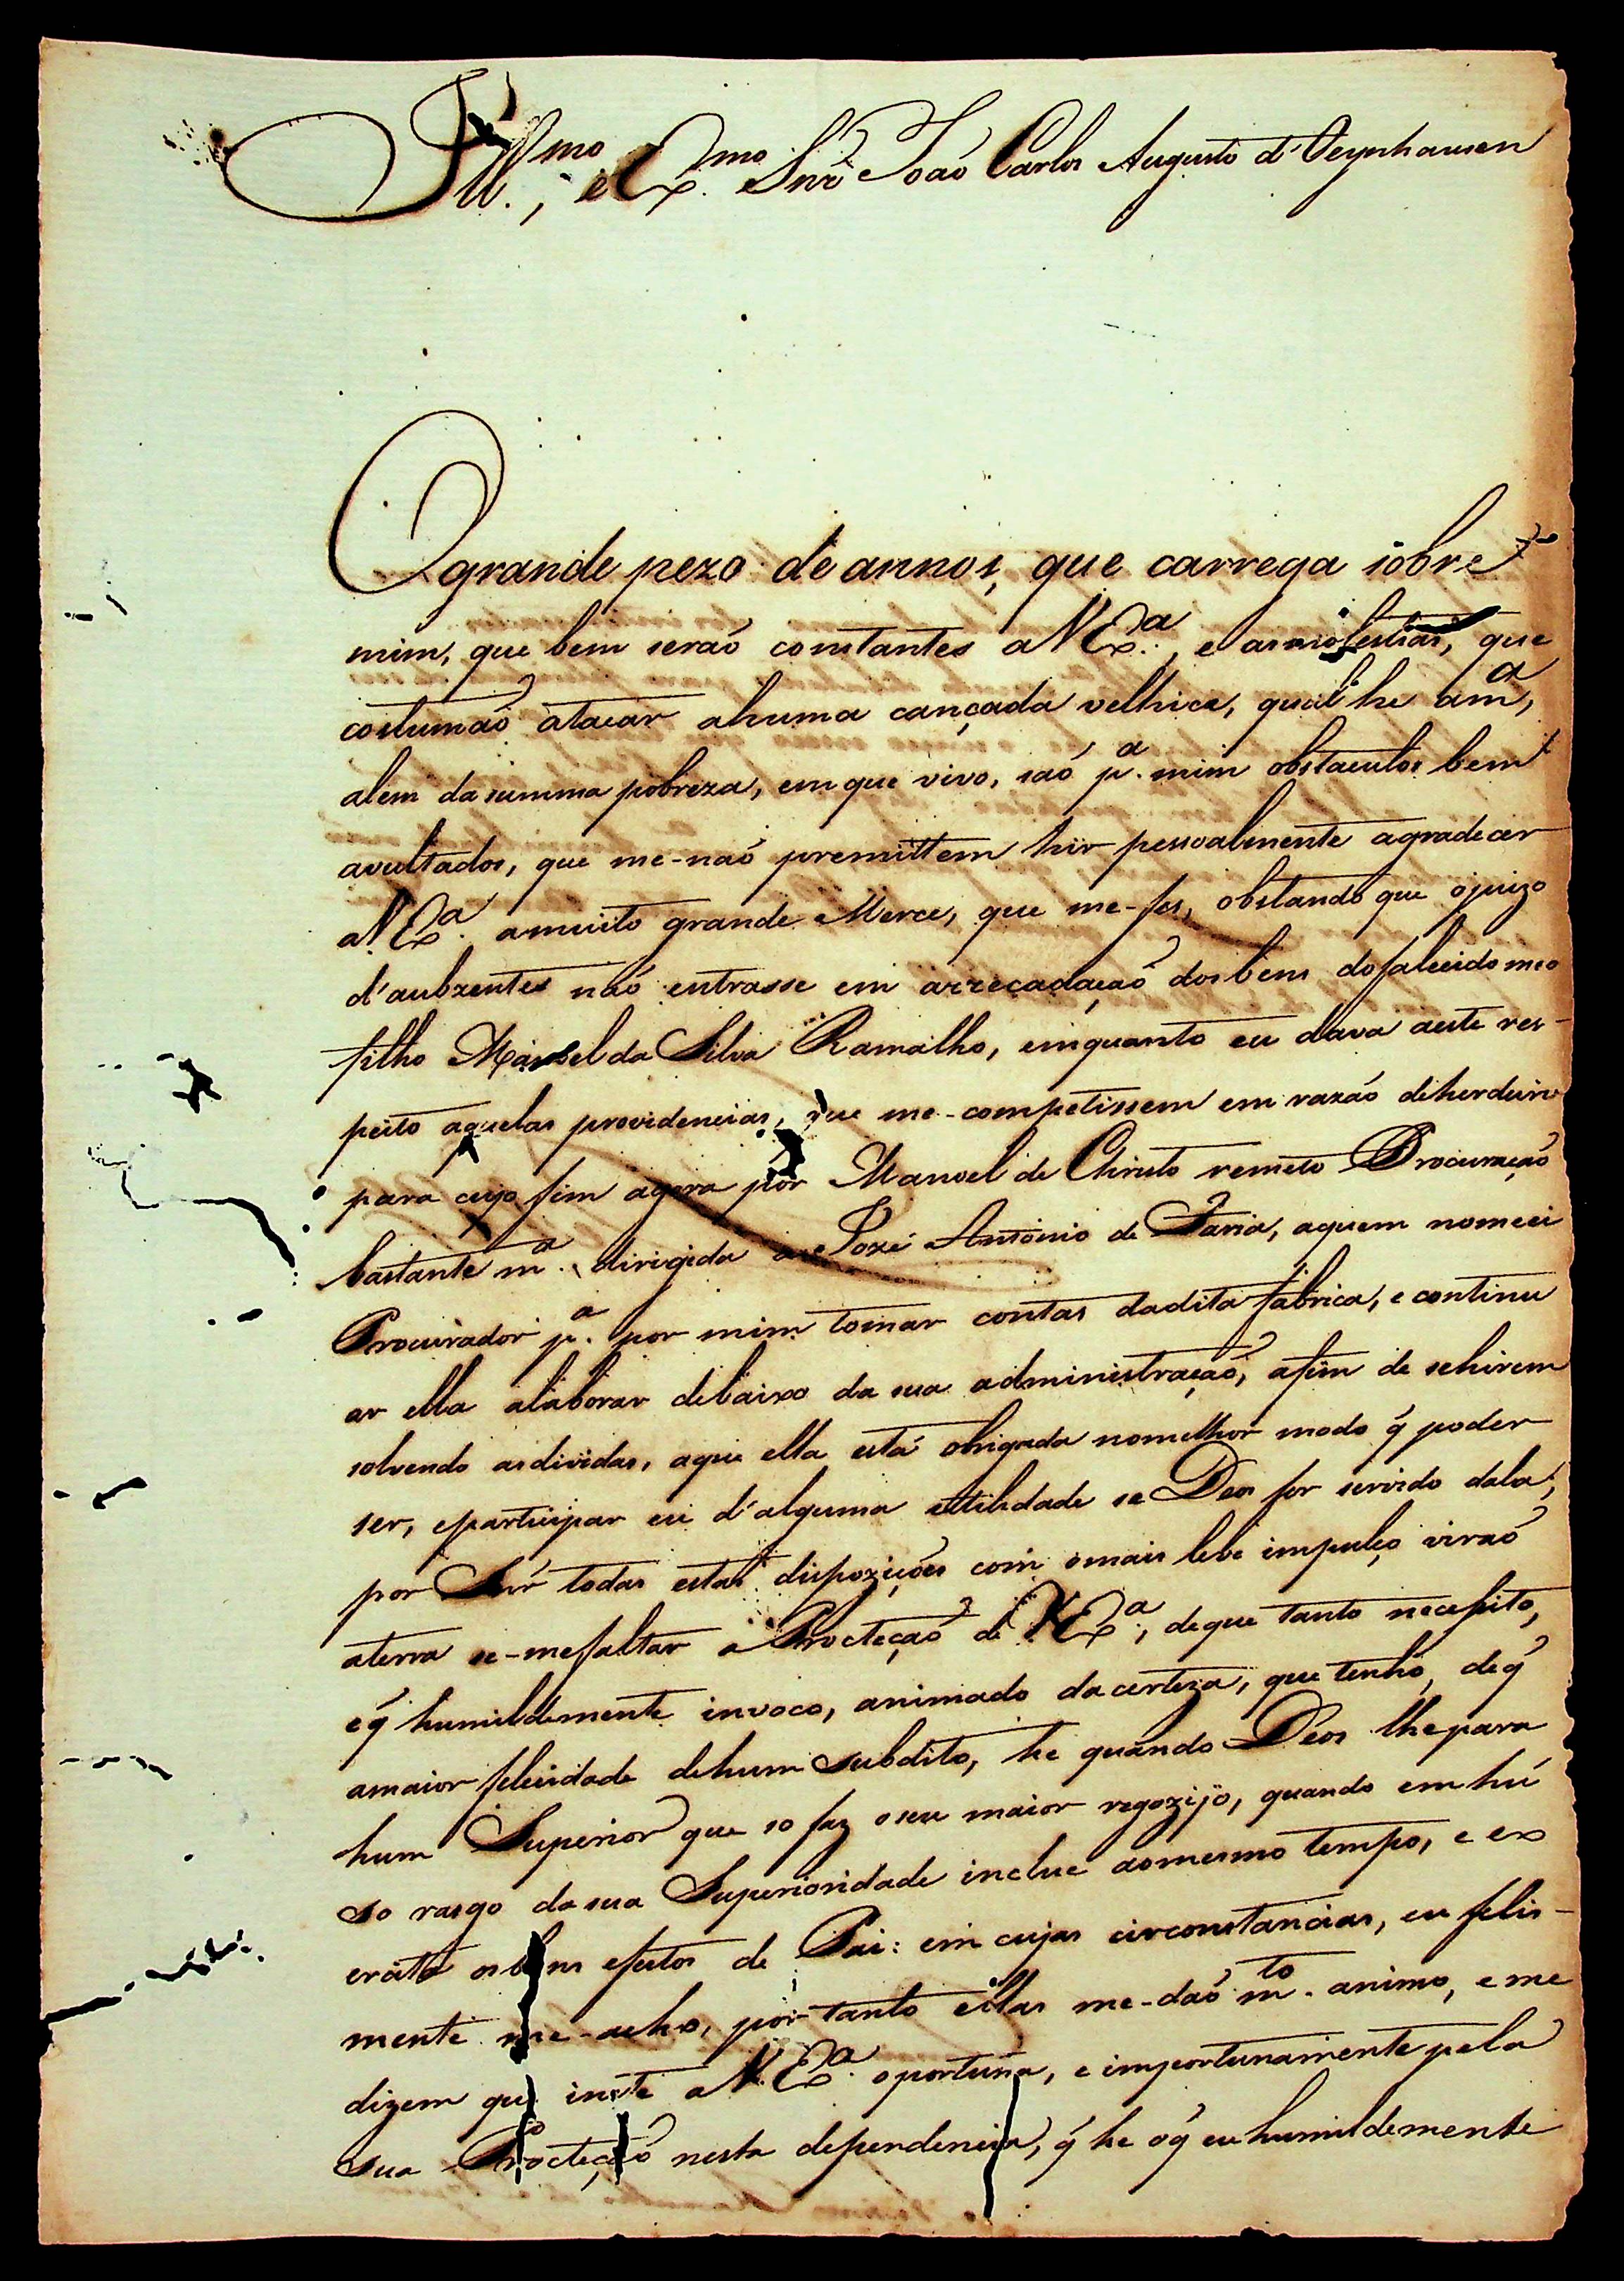 Ill.mo, e Ex.mo Snr João Carlos Augusto d'Oeynhausen
O grande pezo de annos, que carrega sobre
mim, que bem serão constantes a V Ex.a, e as molestias, que
costumão atacar ahuma cançada velhice, qual he am.a,
alem da summa pobreza, em que vivo, são p.a mim obstaculos bem
avultados, que me-não premittem hir pessoalmente agradecer
a V Ex.a amuito grande Merce, que me-fes, obstando que ojuizo
d'aubzentes não entrasse em arrecadação dos bens dofalecido meo
filho Manoel da Silva Ramalho, emquanto eu dava aeste res-
peito aquelas providencias, que me-competissem em razão deherdeiro
para cujo fim agora por Manoel de Christo remeto Procuração
bastante m.a dirigida a Jozé Antonio de Faria, aquem nomeei
Procurador p.a por mim tomar contas dadita fabrica, e continu
ar ella alaborar debaixo da sua administração, afim de sehirem
solvendo asdividas, aque ella está obrigada nomelhor modo q̃ poder
ser, eparticipar eu d'alguma utilidade se Deos for servido dala;
por Snr todas estas dispozições com omais leve impulço virão
aterra se-mefaltar a Protecção de V Ex.a, deque tanto necessito,
eq̃ humildemente invoco, animado dacerteza, que tenho, deq̃
amaior felicidade dehum Subdito, he quando Deos lhepara
hum Superior que so faz oseu maior regozijo, quando em hũ
so rasgo da sua Superioridade inclue aomesmo tempo, e ex
ercita os bens efeitos de Pai: em cujas circonstancias, eu felis-
mente me-acho, portanto ellas me-dão m.to animo, e me
dizem que inste a V Ex.a oportuna, e importunamente pela
sua Protecção nesta dependencia, q̃ he oq̃ eu humildemente